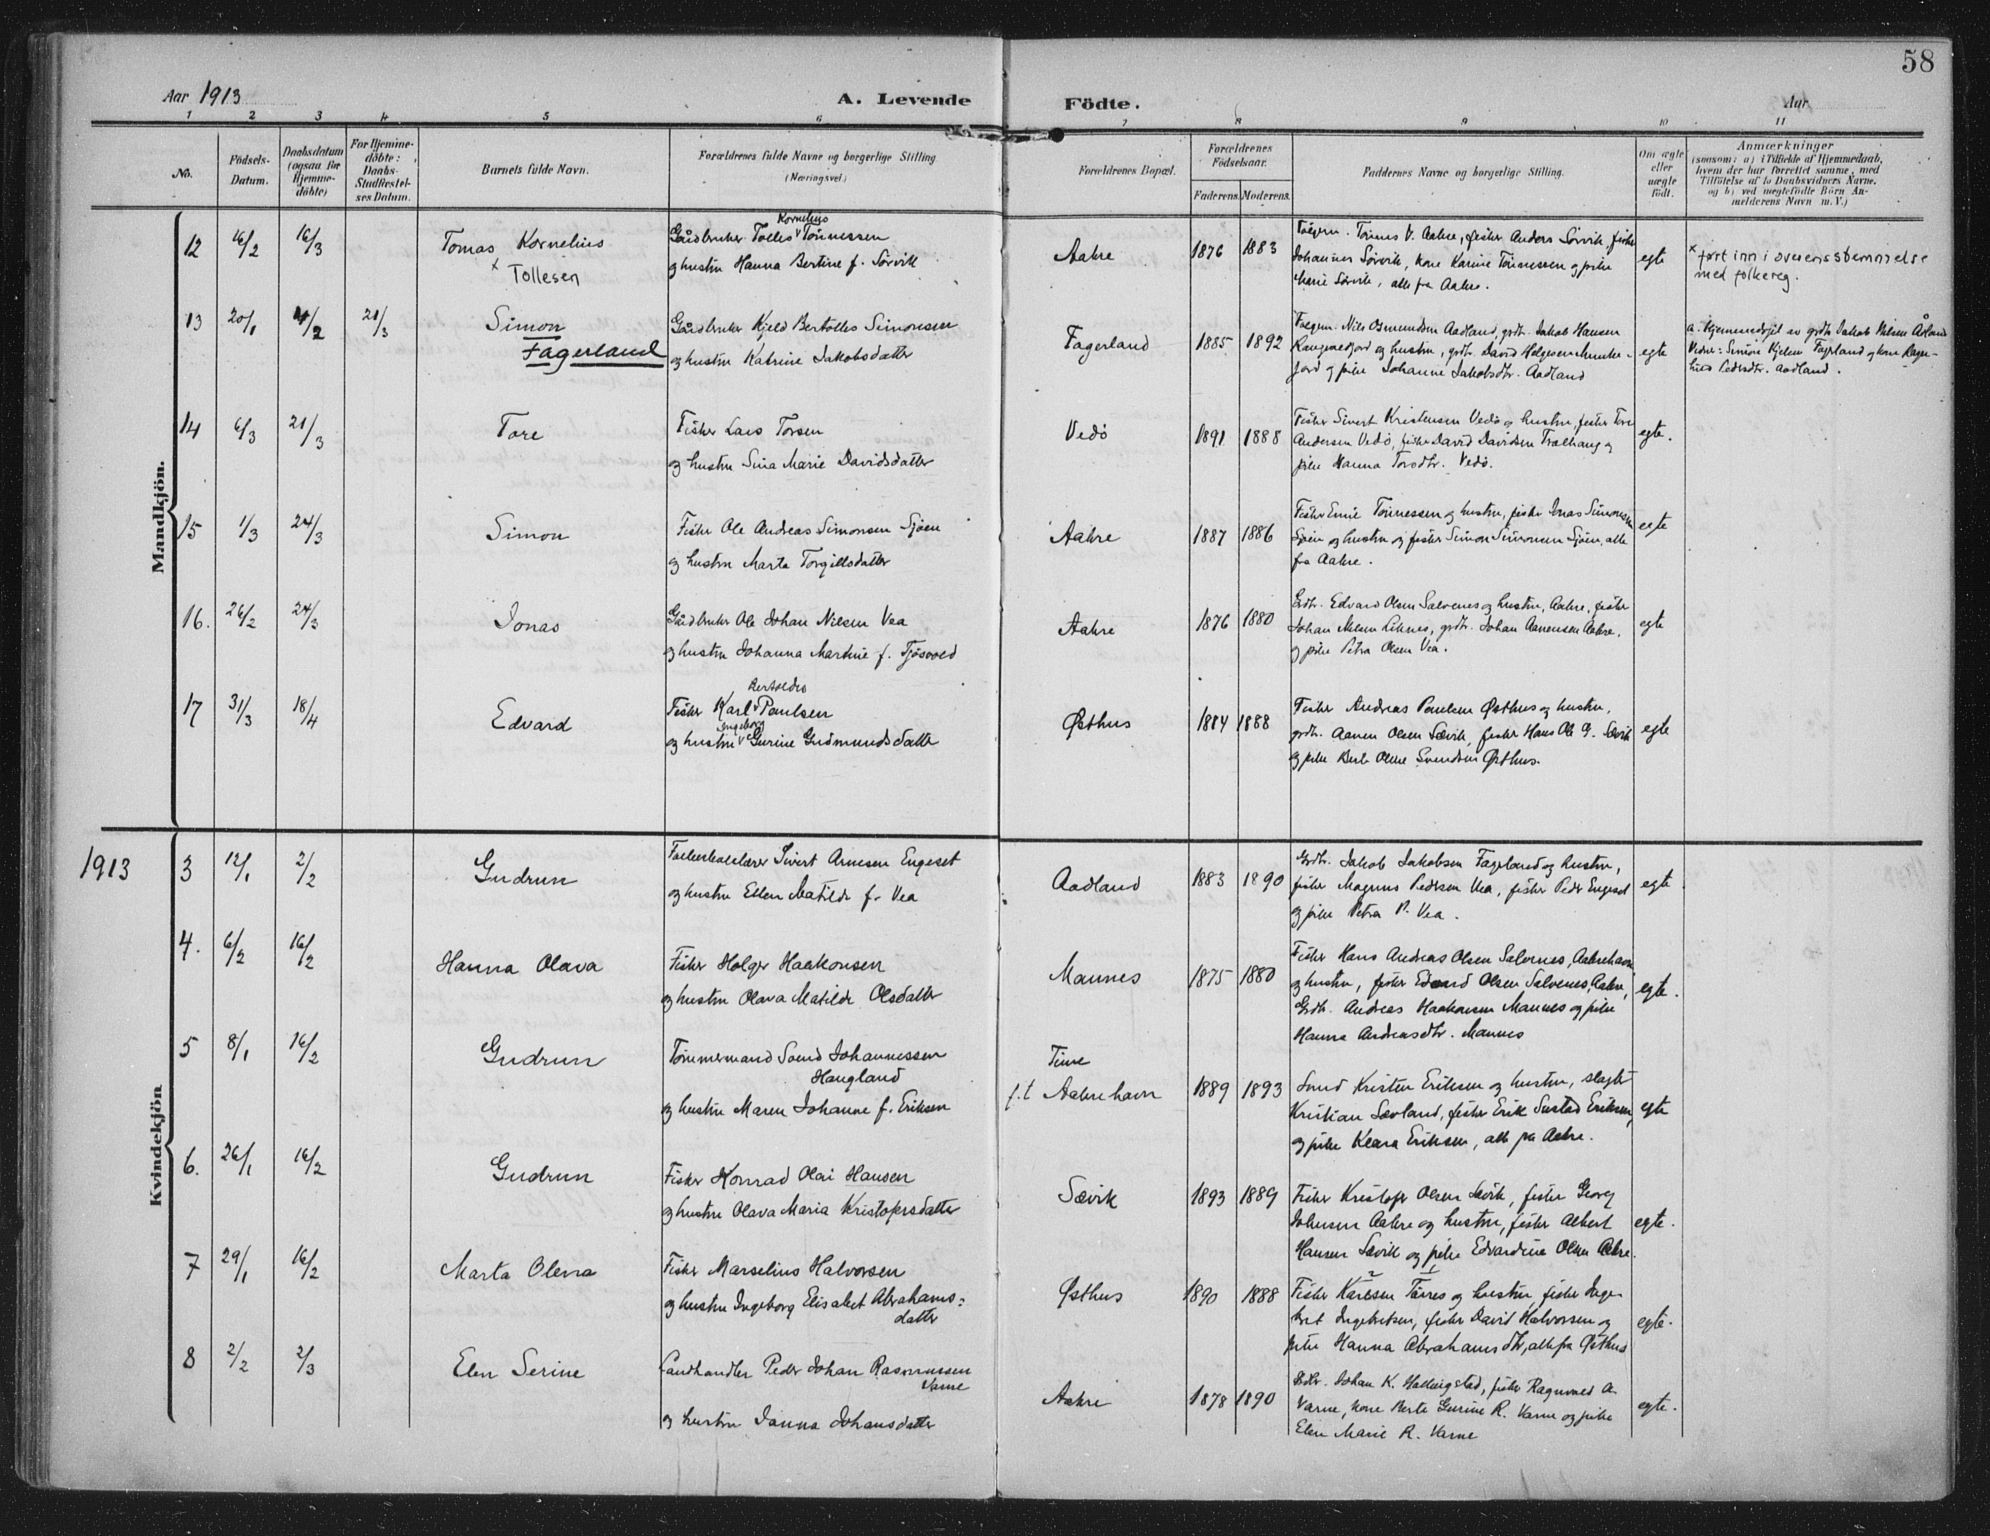 58
Aar 1913
A. Levende Födte.
Aar
1 2 3 4 5 6 7 8 9 10 11
No.
Födsels-Datum.
Daabsdatum (ogsaa for Hjemme-döbte)
For Hjemme-döbte: Daabs-Stadfæstel-ses Datum.
Barnets fulde Navn.
Forældrenes fulde Navne og borgerlige Stilling (Næringsvei)
Forældrenes Bopæl.
Forældrenes Födselsaar.
Faderens. Moderens.
Faddernes Navne og borgerlige Stilling.
Om ægte eller uægte födt.
Anmærkninger
(saasom: a) i Tilfælde af Hjemmedaab,
hvem der har forrettet samme, med
Tilföielse af to Daabsvidners Navne,
og b) ved uægtefödte Börn An-
melderens Navn m. V.)
Mandkjön.
12 16/2 16/3
Tomas Kornelius
x Tollesen
Kornelius
Gårdbruker Tolles v Tönnessen
og hustru Hanna Bertine f. Sörvik
Aakre
1876 1883
Tönnes V. Aakre, fisker Anders Sörvik, fisker
Johannes Sörvik, kone Karine Tönnessen og pike
Marie Sörvik, alle fra Aakre.
egte
x ført inn i overensstemmelse
med folkereg.
13 20/1 4/2 21/3
Simon
Fagerland
Gårdbruker Kjeld Bertolles Simonsen
og hustru Katrine Jakobsdatter
Fagerland
1885 1892
Nils Osmundsen Aadland, grdbr. Jakob Hansen
og hustru, grdbr. David Helgesen Munke-
jord og pike Johanne Jakobsdtr. Aadland
egte
a. Hjemmedöpt av grdbr Jakob Nilsen Ådland
Vidner: Simon Kjelsen Fagerland og kone Ragn-
hild Pedersdtr. Aadland.
14 6/3 21/3
Tore
Fisker Lars Torsen
og hustru Sina Marie Davidsdatter
Vedö
1891 1888
Fisker Sivert Kristensen Vedö og hustru, fisker Tore
Andersen Vedö, fisker David Davidsen Trælhaug og
pike Hanna Torsdtr. Vedö.
egte.
15 1/3 24/3
Simon
Fisker Ole Andreas Simonsen Sjöen
og hustru Marta Torgillsdatter
Aakre
1887 1886
Fisker Enie Tönnessen og hustru, fisker Jonas Simonsen
Sjöen og hustru og fisker Simon Simonsen Sjöen, alle
fra Aakre.
egte
16. 26/2 24/3
Jonas
Gårdbruker Ole Johan Nilsen Vea
og hustru Johanna Martine f. Tjösvold
Aakre
1876 1880
Grdbr. Edvard Olsen Salvenes og hustru, Aakre, fisker
Johan Nilsen Liknes, grdbr. Johan Aanensen Aakre,
og pike Petra Olsen Vea.
egte
17 31/3 18/4
Edvard
Bertoldus
Fisker Karl v Paulsen
Ingeborg
og hustru v Gurine Gudmundsdatter
Østhus
1884 1888
Fisker Andreas Paulsen Østhus og hustru,
grdbr. Aanen Olsen Sævik, fisker Hans Ole G. Sævik
og pike Berte Oline Svendsen Østhus.
egte
Kvindekjön
1913
3 12/1 2/2
Gudrun
Folkeskolelærer Sivert Arnesen Engeset
og hustru Ellen Matilde f. Vea
Aadland
1883 1890
Grdbr. Jakob Jakobsen Fagerland og hustru,
fisker Magnus Pedersen Vea, fisker Peder Engeset
og pike Petra P. Vea.
egte
4. 6/2 16/2
Hanna Olava
Fisker Holger Haakonsen
og hustru Olava Matilde Olsdatter
Mannes
1875 1880
Fisker Hans Andreas Olsen Salvenes, Aakrehavn
og hustru, fisker Edvard Olsen Salvenes, Aakre,
Grdbr. Andreas Haakonsen Mannes og pike
Hanna Andreasdtr. Mannes
egte.
5 8/1 16/2
Gudrun
Tömmermand Svend Johannessen
Haugland
og hustru Maren Johanne f. Eriksen
Time
f.t Aakrehavn
1889 1893
Smed Kristen Eriksen og hustru, slagter
Kristian Sævland, fisker Erik Sustad Eriksen,
og pike Klara Eriksen, alle fra Aakre.
egte
6. 26/1 16/2
Gudrun
Fisker Konrad Olai Hansen
og hustru Olava Maria Kristofersdatter
Sævik
1893 1889
Fisker Kristofer Olsen Sævik, fisker Georg
Johnsen Aakre og hustru, fisker Albert
Hansen Sævik og pike Edvardine Olsen Aakre.
egte.
7 29/1 16/2
Marta Olena
Fisker Marselius Halvorsen
og hustru Ingeborg Elisabet Abrahams-
datter
Østhus
1890 1888
2 1
Fisker Karlsen Törres og hustru, fisker Inge-
bret Ingebretsen, fisker David Halvorsen og
pike Hanna Abrahamsdtr, alle fra Østhus
egte.
8 2/2 2/3
Elen Serine
Landhandler Peder Johan Rasmussen
Varne
og hustru Janna Johansdatter
Aakre
1878 1890
Johan K. Hallingstad, fisker Ragnvald A.
Varne, kone Berte Gurine R. Varne og pike
Elen Marie R. Varne
egte.